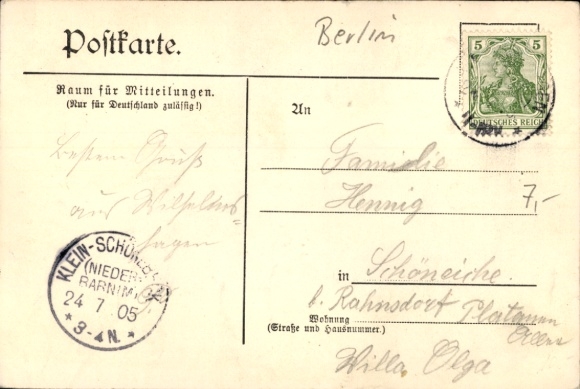 Postkarte.
Berlin
Raum für Mitteilungen.
(Nur für Deutschland zulässig!)
Besten Gruß
aus Wilhelms-
hagen
KLEIN-SCHÖNEB
(NIEDER-
BARNIM)
24 7 05
* 3-4 N. *
5 5
DEUTSCHES REICH
An
Familie
Hennig
7,-
in Schöneiche
b. Rahnsdorf Platanen
Allee
Wohnung
(Straße und Hausnummer.)
Villa Olga